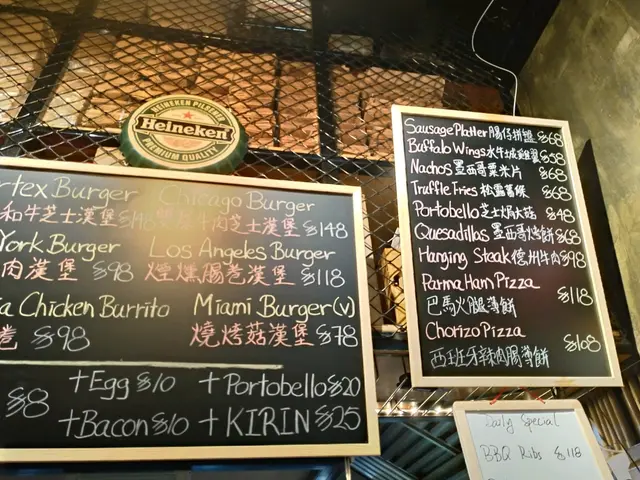 HEINEKEN PILSENER
Heineken
PREMIUM QUALITY
rtex Burger
和牛芝士漢堡 $148
Chicago Burger
牛肉芝士漢堡 $148
York Burger
肉漢堡 $98
Los Angeles Burger
煙燻腸卷漢堡 $118
a Chicken Burrito
卷 $98
Miami Burger (v)
燒烤菇漢堡 $78
$8
+Egg $10
+Portobello $20
+Bacon $10
+KIRIN $25
Sausage Platter 腸仔拼盤 $68
Buffalo Wings 水牛城雞翼 $58
Nachos 墨西哥粟米片 $68
Truffle Fries 松露薯條 $68
Portobello 芝士焗大菇 $48
Quesadillas 墨西哥烤餅 $68
Hanging Steak 德州牛肉 $98
Parma Ham Pizza
巴馬火腿薄餅 $118
Chorizo Pizza
西班牙辣肉腸薄餅 $108
Daily Special
BBQ Ribs $118